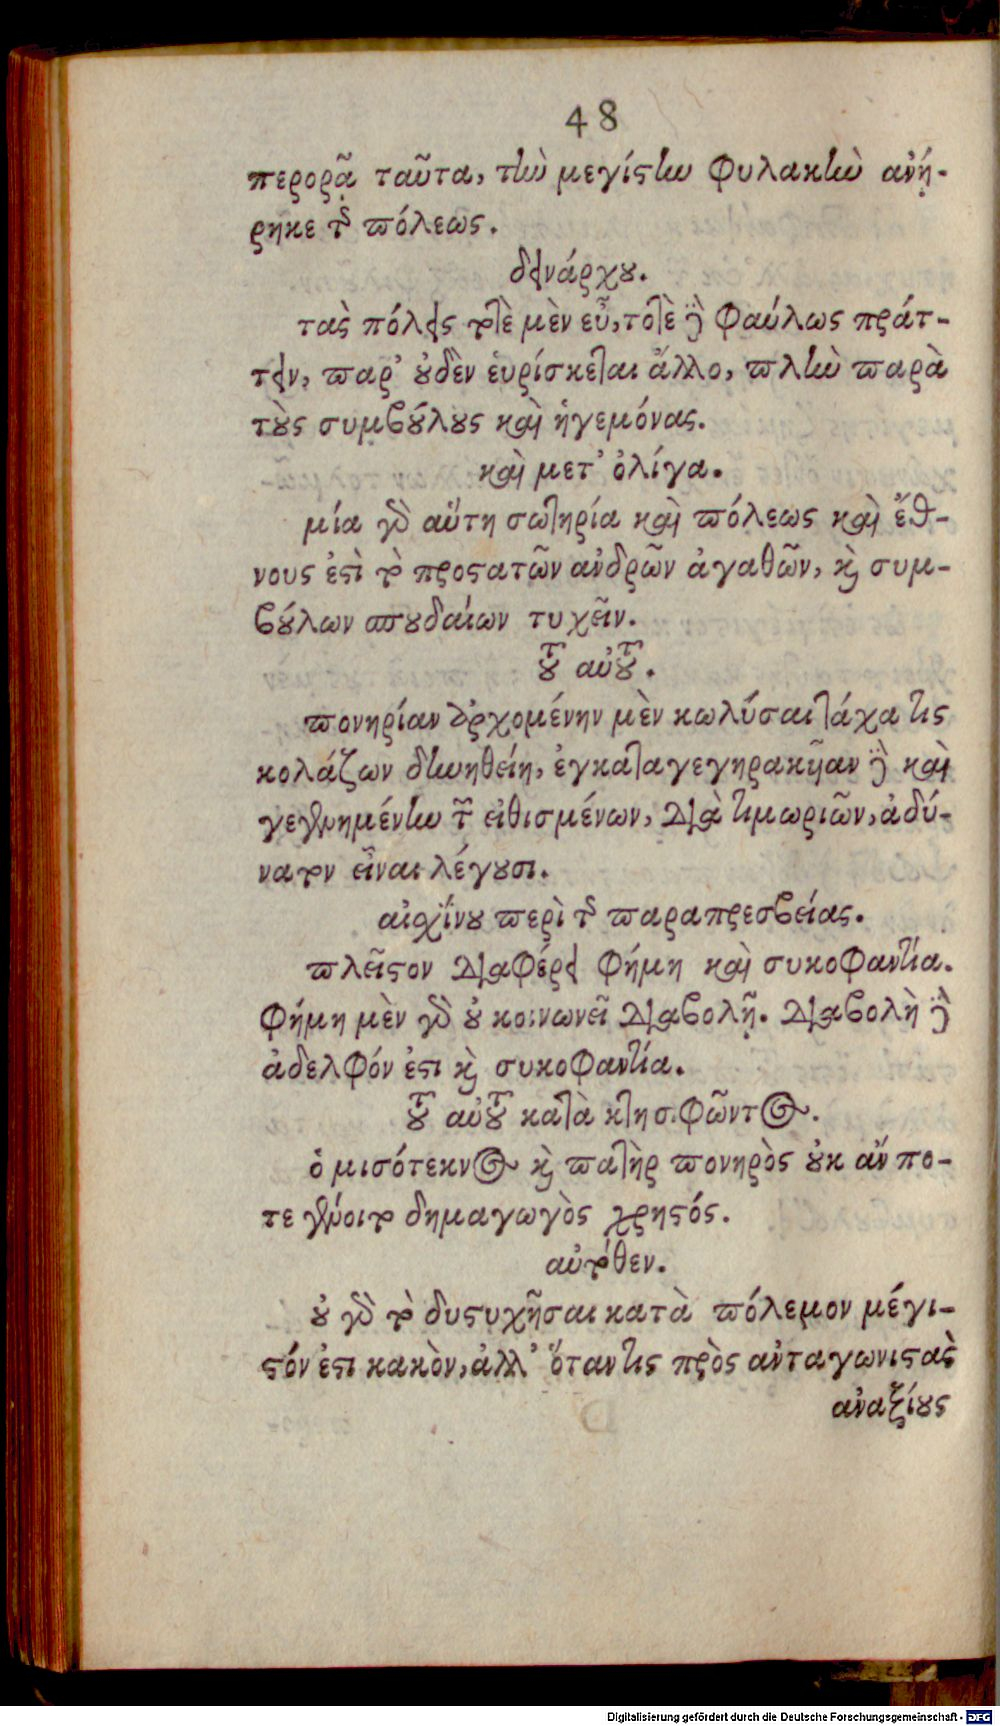 48
περορᾷ ταῦτα, τὴν μεγίστην φυλακὴν ἀνῄ-
ρηκε τῆς πόλεως.
δεινάρχου.
τὰς πόλεις τότε μὲν εὖ, τοτὲ δὲ φαύλως πράτ-
τειν, παρ’ οὐδὲν εὑρίσκεται ἄλλο, πλὴν παρὰ
τοὺς συμβούλους καὶ ἡγεμόνας.
καὶ μετ’ ὀλίγα.
μία γὰρ αὕτη σωτηρία καὶ πόλεως καὶ ἔθ-
νους ἐστὶ τὸ προστατῶν ἀνδρῶν ἀγαθῶν, καὶ συμ-
βούλων σπουδαίων τυχεῖν.
τοῦ αὐτοῦ.
πονηρίαν ἀρχομένην μὲν κωλύσαι τάχα τις
κολάζων δυνηθείη, ἐγκαταγεγηρακυῖαν δὲ καὶ
γεγενημένην τῶν εἰθισμένων, διὰ τιμωριῶν, ἀδύ-
νατον εἶναι λέγουσι.
αἰσχίνου περὶ τῆς παραπρεσβείας.
πλεῖστον διαφέρει φήμη καὶ συκοφαντία.
φήμη μὲν γὰρ οὐ κοινωνεῖ διαβολῇ. διαβολὴ δὲ
ἀδελφόν ἐστι καὶ συκοφαντία.
τοῦ αὐτοῦ κατὰ κτησιφῶντος.
ὁ μισότεκνος καὶ πατὴρ πονηρὸς οὐκ ἄν πο-
τε γένοιτο δημαγωγὸς χρηστός.
αὐτόθεν.
οὐ γὰρ τὸ δυστυχῆσαι κατὰ πόλεμον μέγι-
στόν ἐστι κακὸν, ἀλλ’ ὅταν τις πρὸς ἀνταγωνιστὰς
ἀναξίους
Digitalisierung gefördert durch die Deutsche Forschungsgemeinschaft - DFG